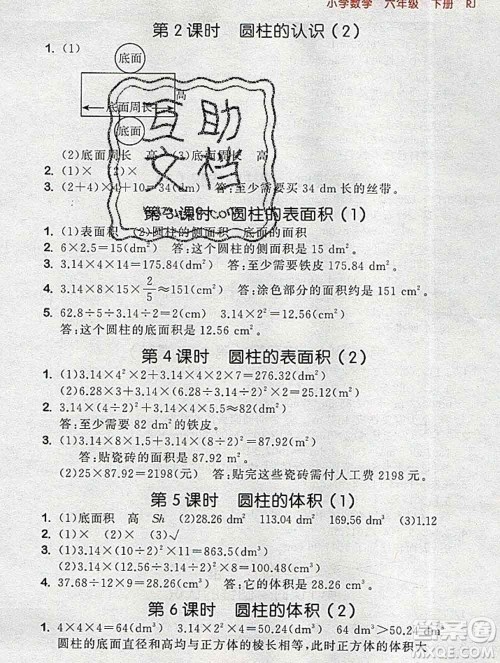 小学数学 六年级 下册 RJ
第 2 课时 圆柱的认识(2)
1. (1)
底面
高
底面周长
底面
(2)底面周长 高 (3)底面周长 高
1. (1)× (2)× ×
3. (2+4)×4+10=34(dm) 答:至少需要买 34 dm 长的丝带。
互助
文档
第 3 课时 圆柱的表面积(1)
1. (1)表面积 (2)圆柱的侧面积 底面的面积
2. 6×2.5=15(dm²) 答:这个圆柱的侧面积是 15 dm²。
3. 3.14×4×14=175.84(dm²) 答:至少需要铁皮 175.84 dm²。
4. 3.14×8×15×2/5≈151(cm²) 答:涂色部分的面积约是 151 cm²。
5. 62.8÷5÷3.14÷2=2(cm) 3.14×2²=12.56(cm²)
答:这个圆柱的底面积是 12.56 cm²。
第 4 课时 圆柱的表面积(2)
1. (1)3.14×4²×2+3.14×4×2×7=276.32(dm²)
(2)6.28×3+3.14×(6.28÷3.14÷2)²×2=25.12(cm²)
2. 3.14×(4÷2)²+3.14×4×5.5≈82(dm²)
答:至少需要 82 dm² 的铁皮。
3. (1)3.14×8×1.5+3.14×(8÷2)²=87.92(m²)
答:贴瓷砖的面积是 87.92 m²。
(2)25×87.92=2198(元) 答:贴完这些瓷砖需付人工费 2198 元。
第 5 课时 圆柱的体积(1)
1. (1)底面积 高 Sh (2)28.26 dm² 113.04 dm² 169.56 dm³ (3)1.12
2. (1)× (2)× (3)√
3. (1)3.14×(10÷2)²×11=863.5(dm³)
(2)3.14×(6÷2)²×12×10=3391.2(cm³)
4. 37.68÷12×9=28.26(cm³) 答:它的体积是 28.26 cm³。
第 6 课时 圆柱的体积(2)
1. 4×4×4=64(dm³) 3.14×(4÷2)²×4=50.24(dm³) 64 dm³>50.24 dm³
圆柱的底面直径和高均与正方体的棱长相等,此时正方体的体积大